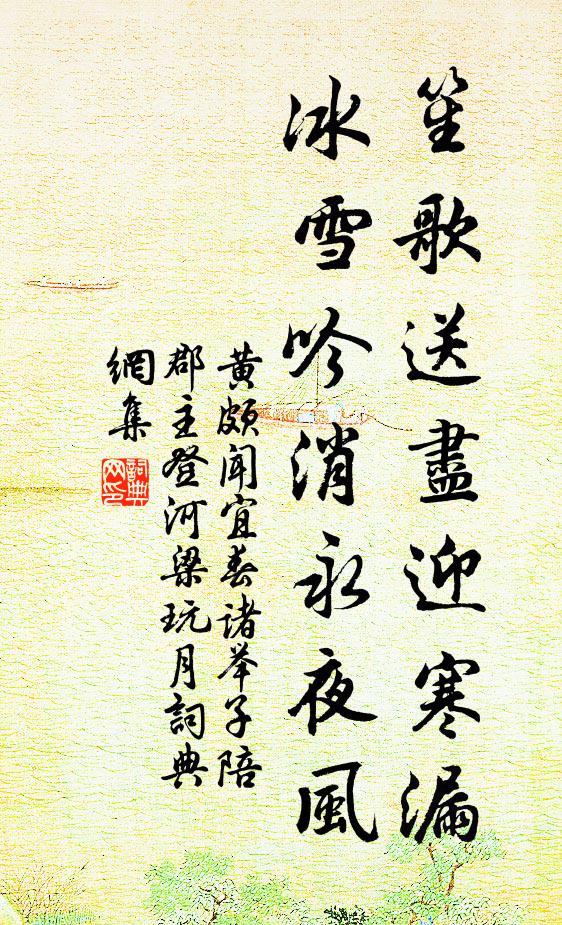 笙歌送盡迎寒漏
冰雪吟消永夜風
黄頗闻宜春诸举子陪
郡主登河梁玩月詞典
網集
詞典
网印